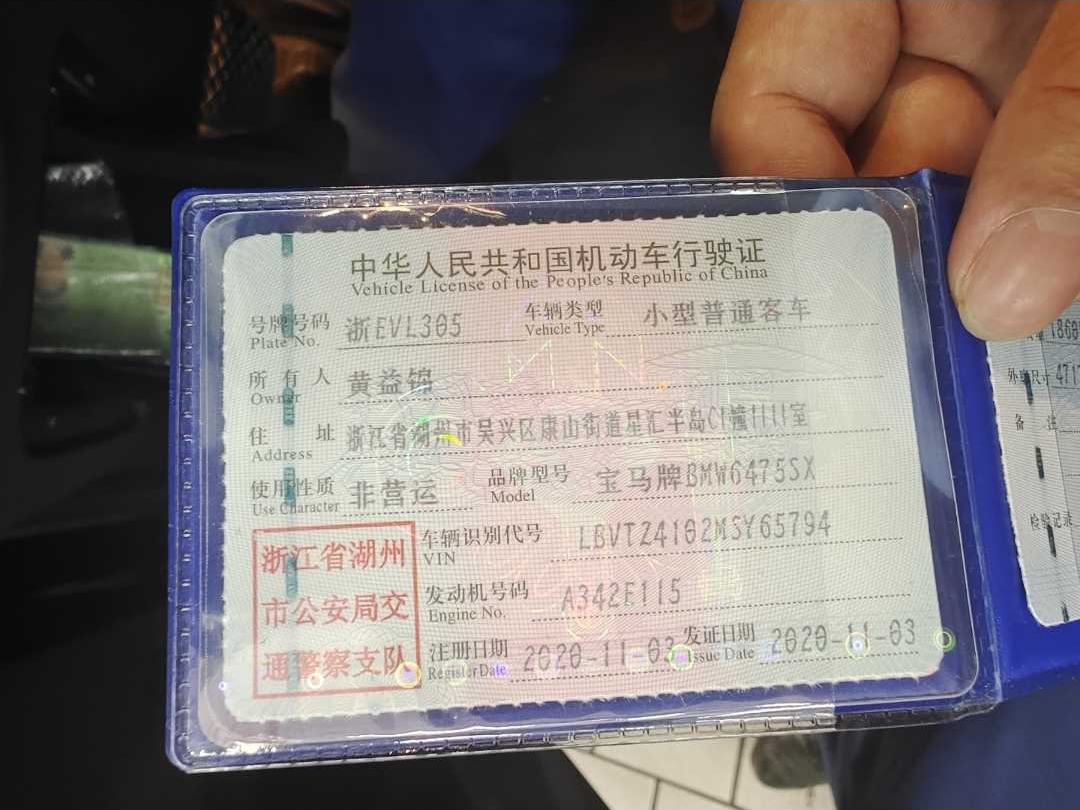 中华人民共和国机动车行驶证
Vehicle License of the People's Republic of China
号牌号码 浙EVL305 车辆类型 小型普通客车
Plate No. Vehicle Type
所有人 黄益锦
Owner
住址 浙江省湖州市吴兴区康山街道星汇半岛C1幢1111室
Address
使用性质 非营运 品牌型号 宝马牌BMW6475SX
Use Character Model
浙江省湖州
市公安局交
通警察支队
车辆识别代号 LBVTZ4102MSY65794
VIN
发动机号码 A342E115
Engine No.
注册日期 2020-11-03 发证日期 2020-11-03
Register Date Issue Date
1860
外廓尺寸 471
备注
检验记录